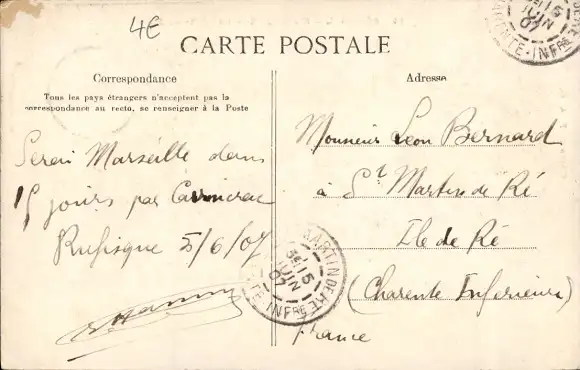 4€
CARTE POSTALE
Correspondance
Tous les pays étrangers n'acceptent pas la
correspondance au recto, se renseigner à la Poste
Serai Marseille dans
15 jours par
Rufisque 5/6/07
Adresse
Monsieur Léon Bernard
à St Martin de Ré
Ile de Ré
(Charente Inférieure)
France
MARTIN DE RÉ
16
JUIN
07
TE-INFRE
16
JUIN
07
NTE-INFRE